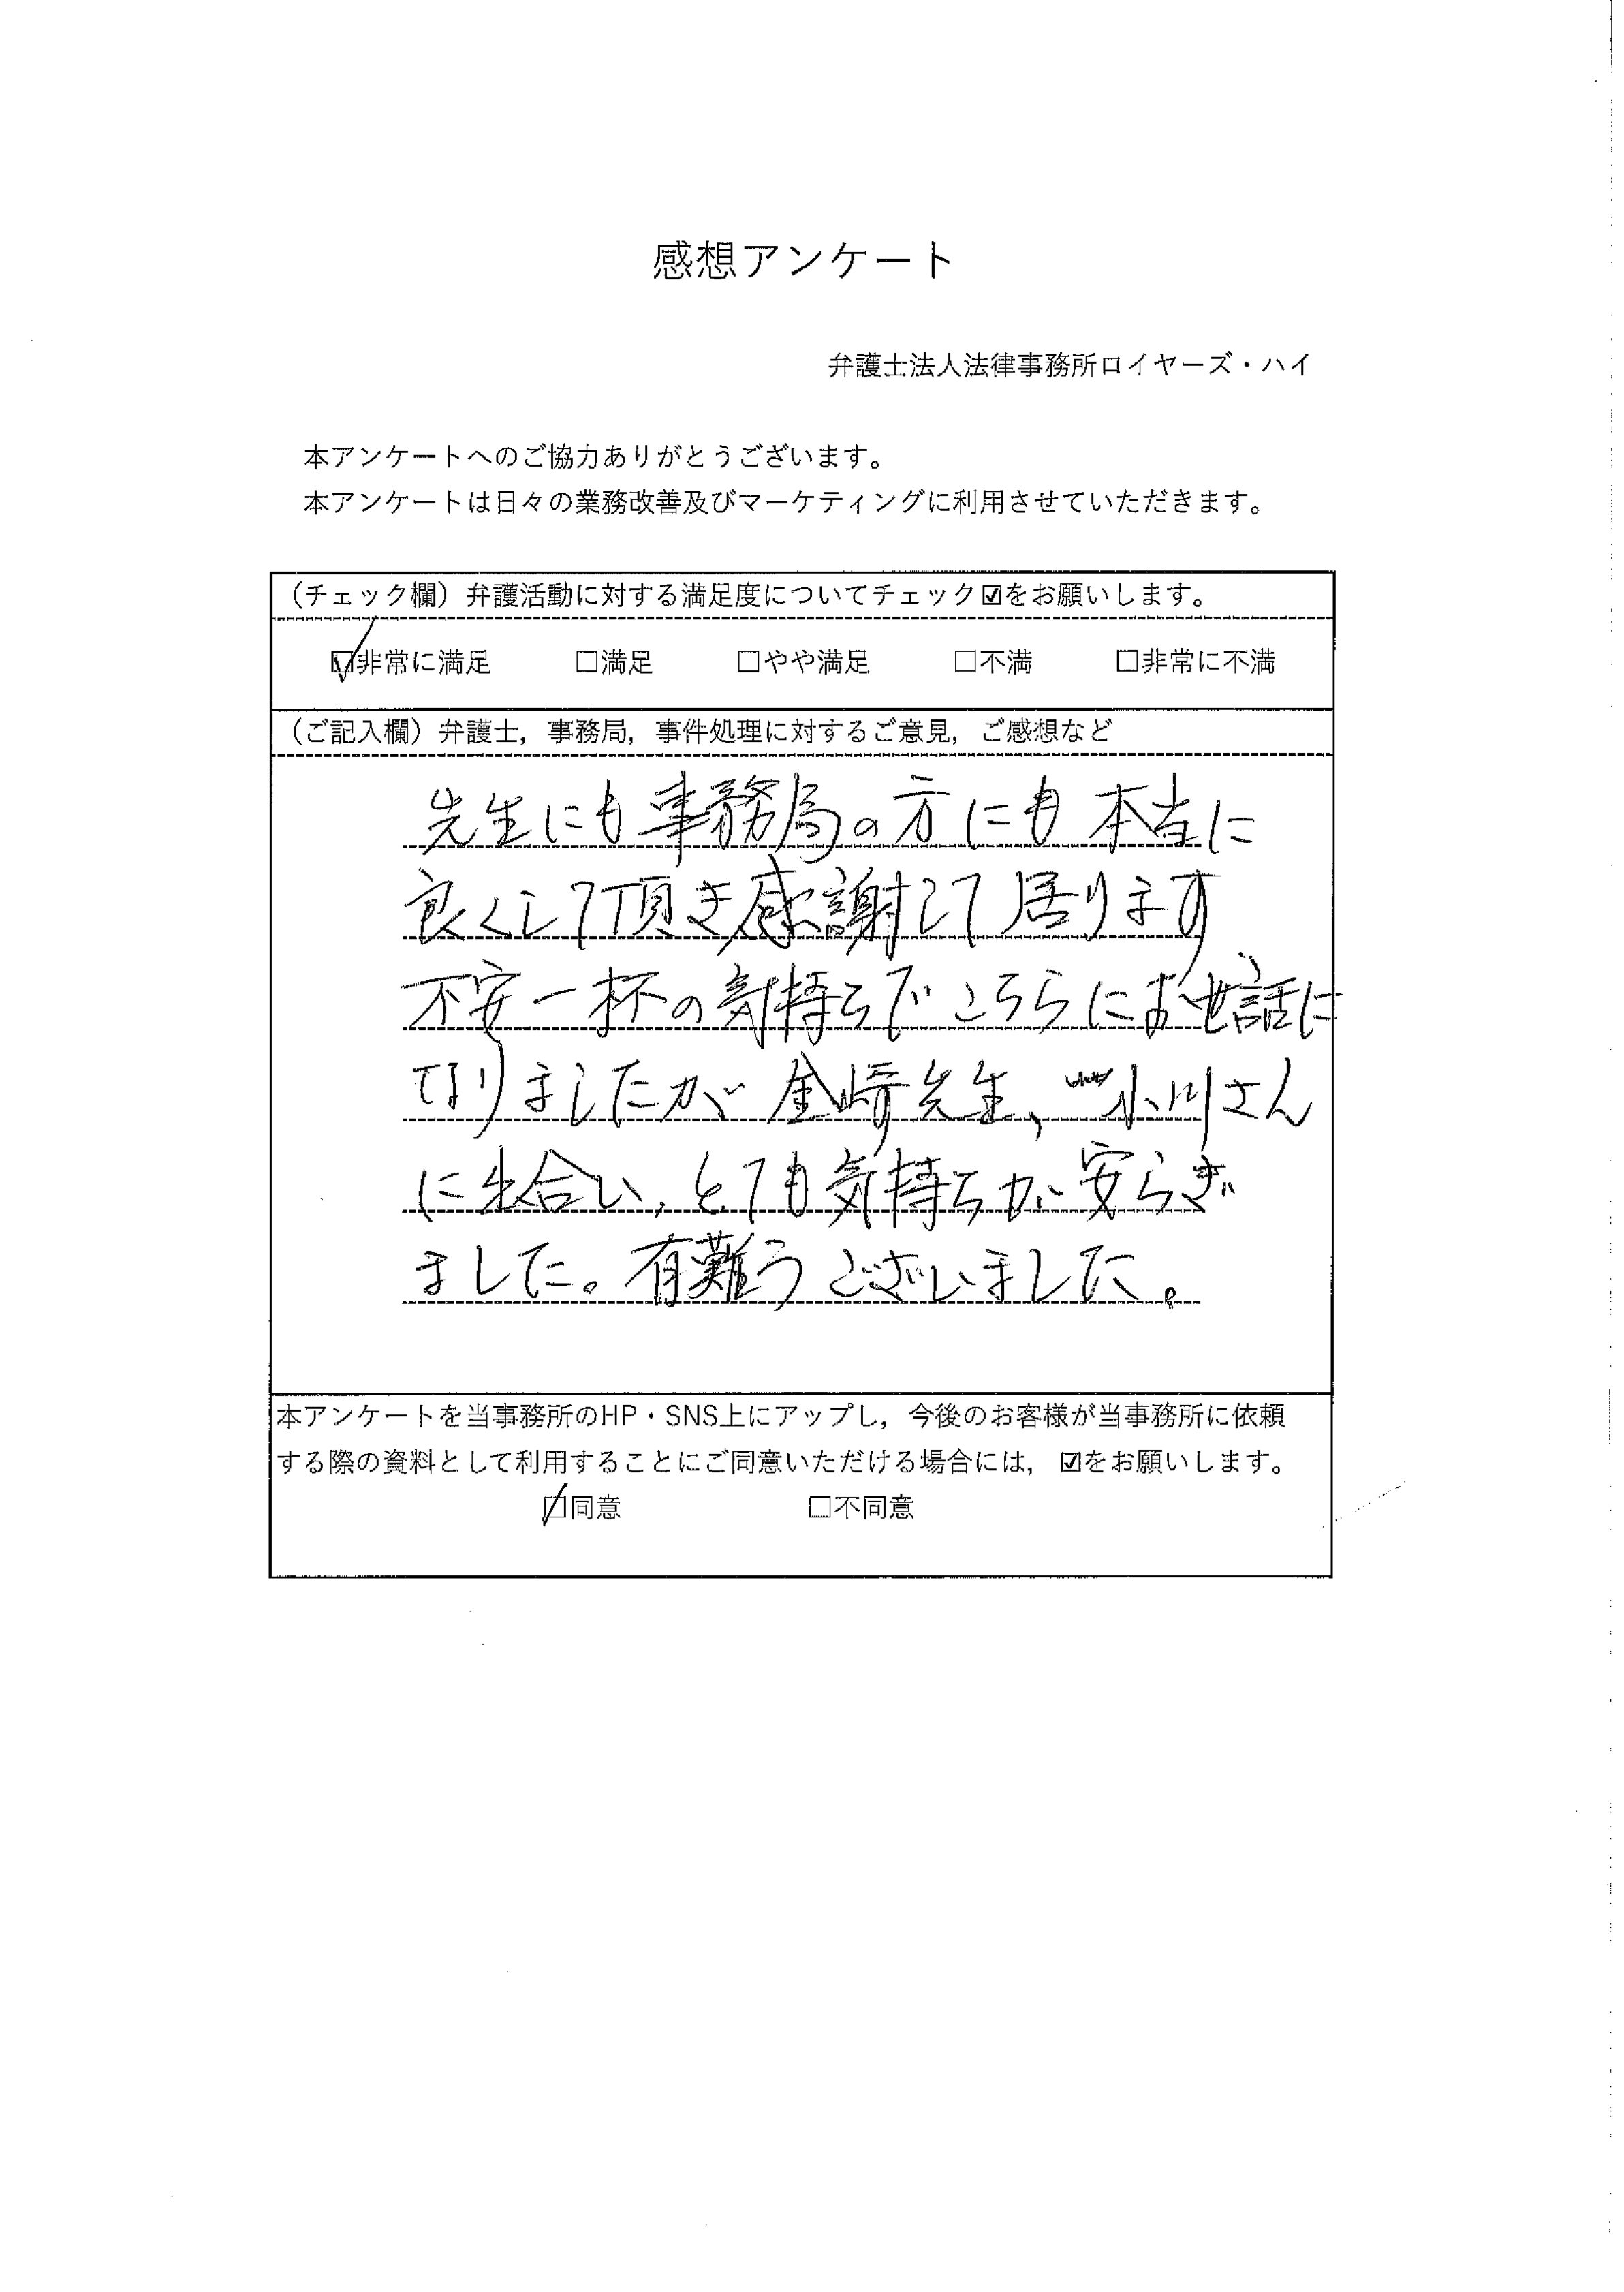 感想アンケート
弁護士法人法律事務所ロイヤーズ・ハイ
本アンケートへのご協力ありがとうございます。
本アンケートは日々の業務改善及びマーケティングに利用させていただきます。
（チェック欄）弁護活動に対する満足度についてチェック☑をお願いします。
☑非常に満足 □満足 □やや満足 □不満 □非常に不満
（ご記入欄）弁護士，事務局，事件処理に対するご意見，ご感想など
先生にも事務局の方にも本当に
良くして頂き感謝して居ります
不安一杯の気持ちでこちらにお世話に
なりましたが金崎先生、小川さん
に出合い、とても気持ちが安らぎ
ました。有難うございました。
本アンケートを当事務所のHP・SNS上にアップし，今後のお客様が当事務所に依頼
する際の資料として利用することにご同意いただける場合には，☑をお願いします。
☑同意 □不同意